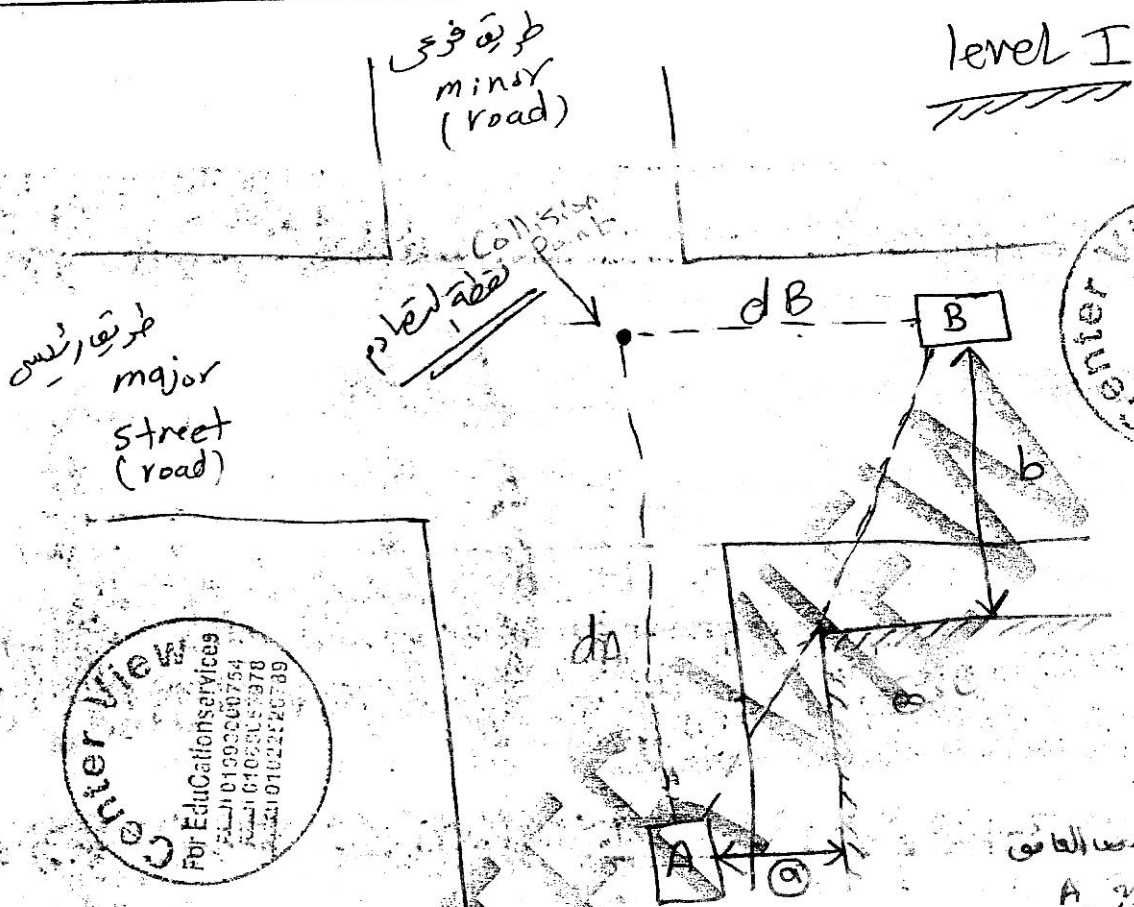 level I
طريق فرعى
minor
(road)
Collision
point
نقطة التصادم
dB
B
طريق رئيسى
major
street
(road)
b
dA
Center View
For EduCationservices
A
a
A